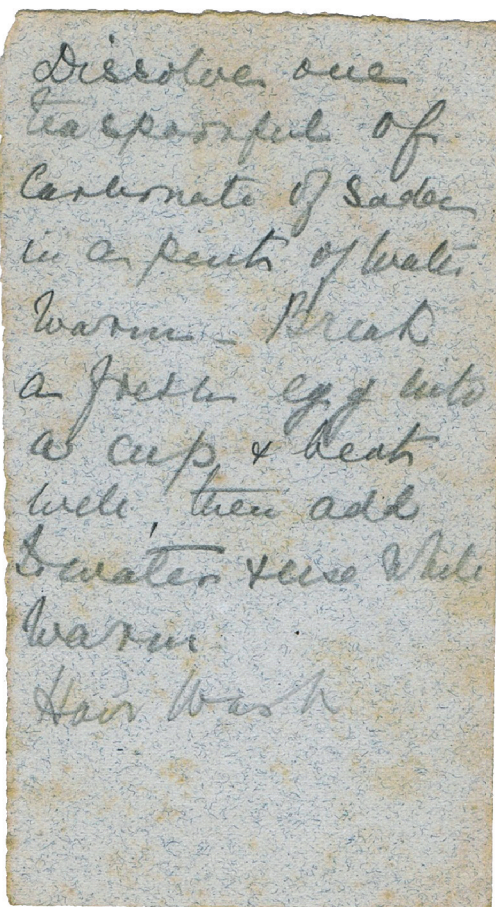 Dissolve one
teaspoonful of
Carbonate of Soda
in a pint of Water
Warm – Break
a fresh egg into
a cup & beat
well, then add
to water & use While
Warm
Hair Wash